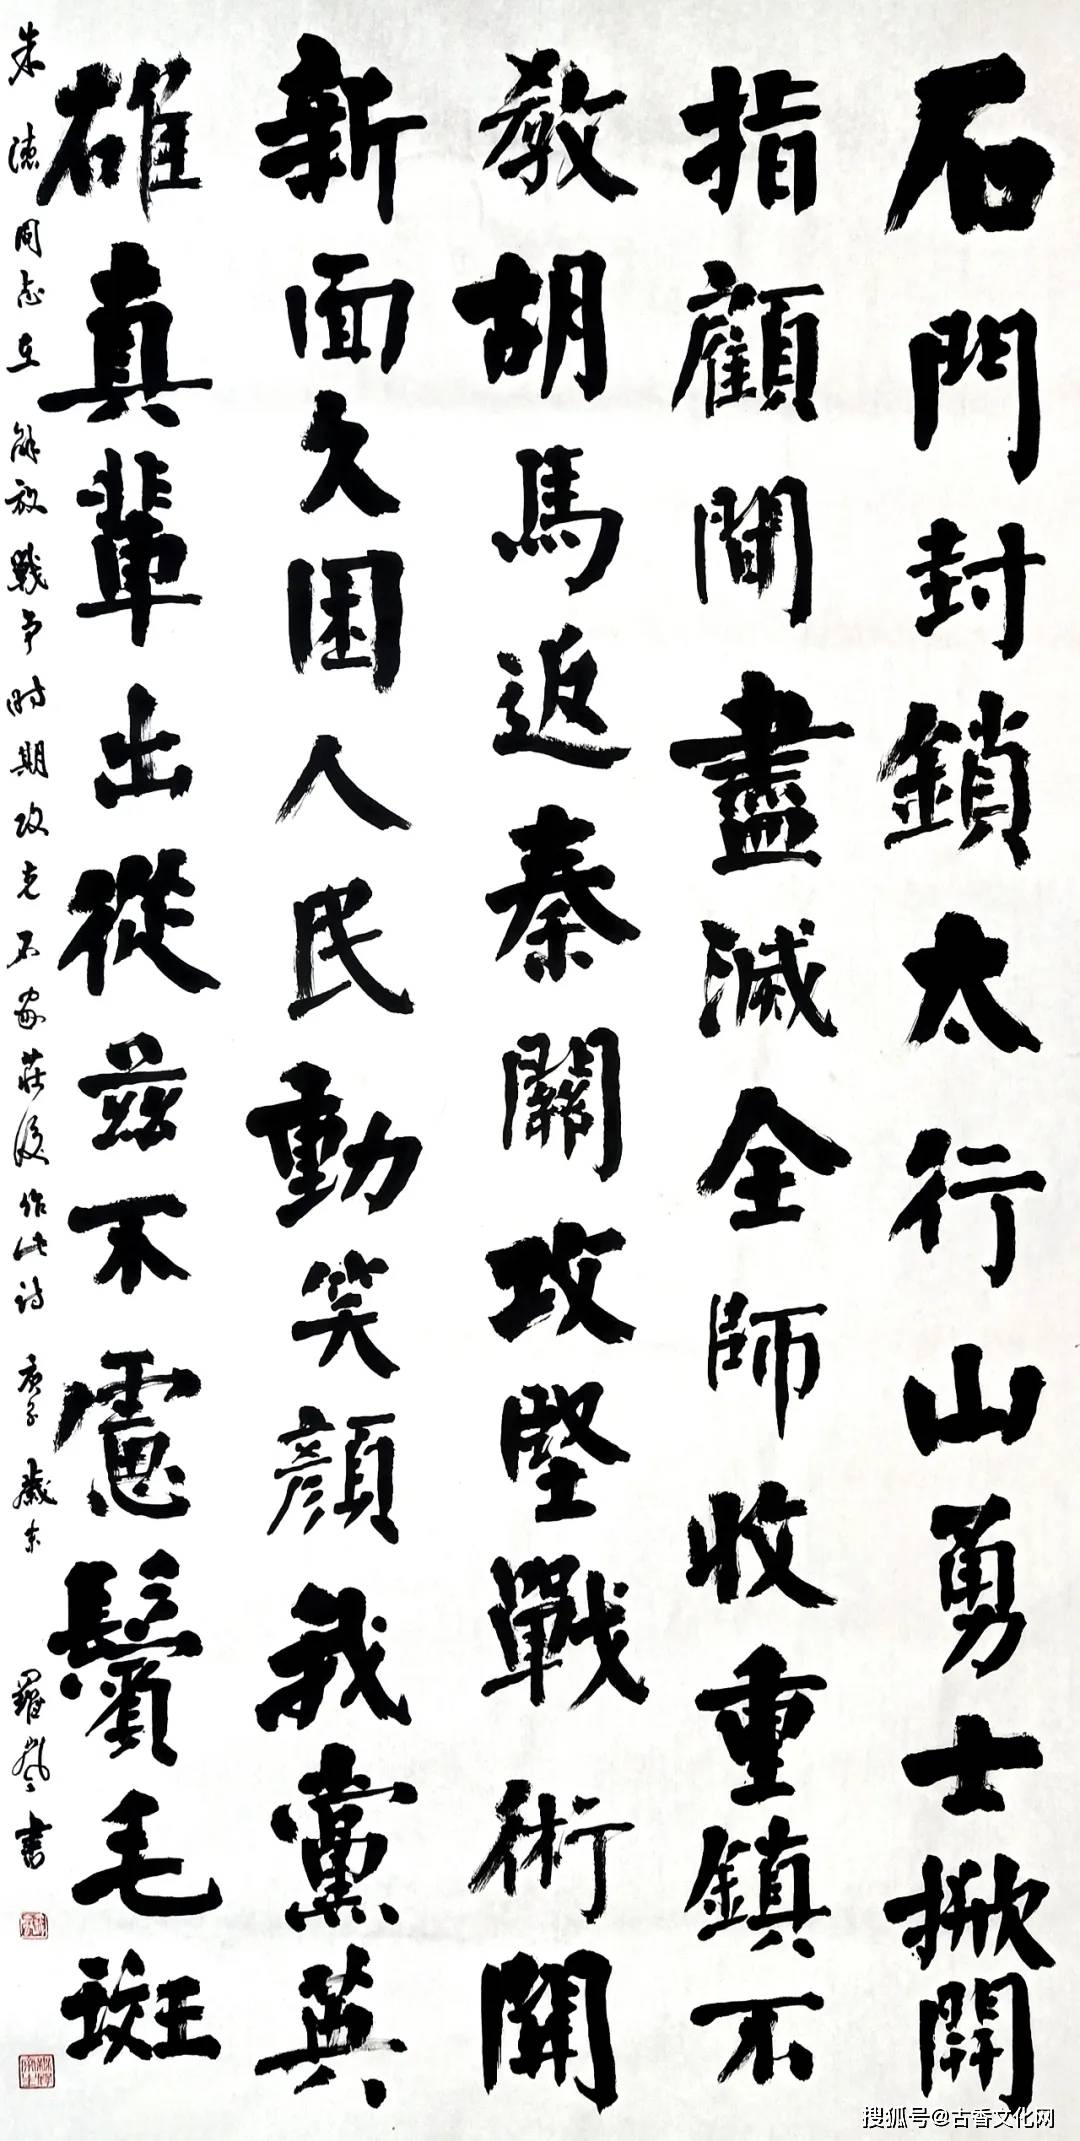 石門封鎖太行山勇士掀開
指顧間盡滅全師收重鎮不
教胡馬返秦關攻堅戰術開
新面久困人民動笑顏我黨英
雄真輩出從茲不慮鬢毛斑
朱德同志在解放戰争时期攻克石家莊後作此诗 庚子歲末 羅嵐書
搜狐号@古香文化网